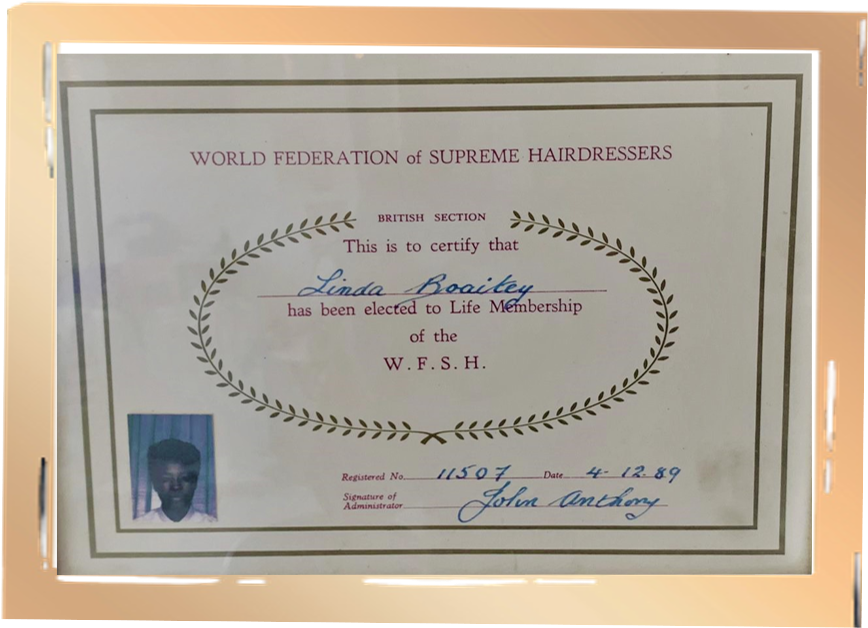 WORLD FEDERATION of SUPREME HAIRDRESSERS
BRITISH SECTION
This is to certify that
Linda Boaitey
has been elected to Life Membership
of the
W. F. S. H.
Registered No. 11507 Date 4. 12. 89
Signature of
Administrator John Anthony